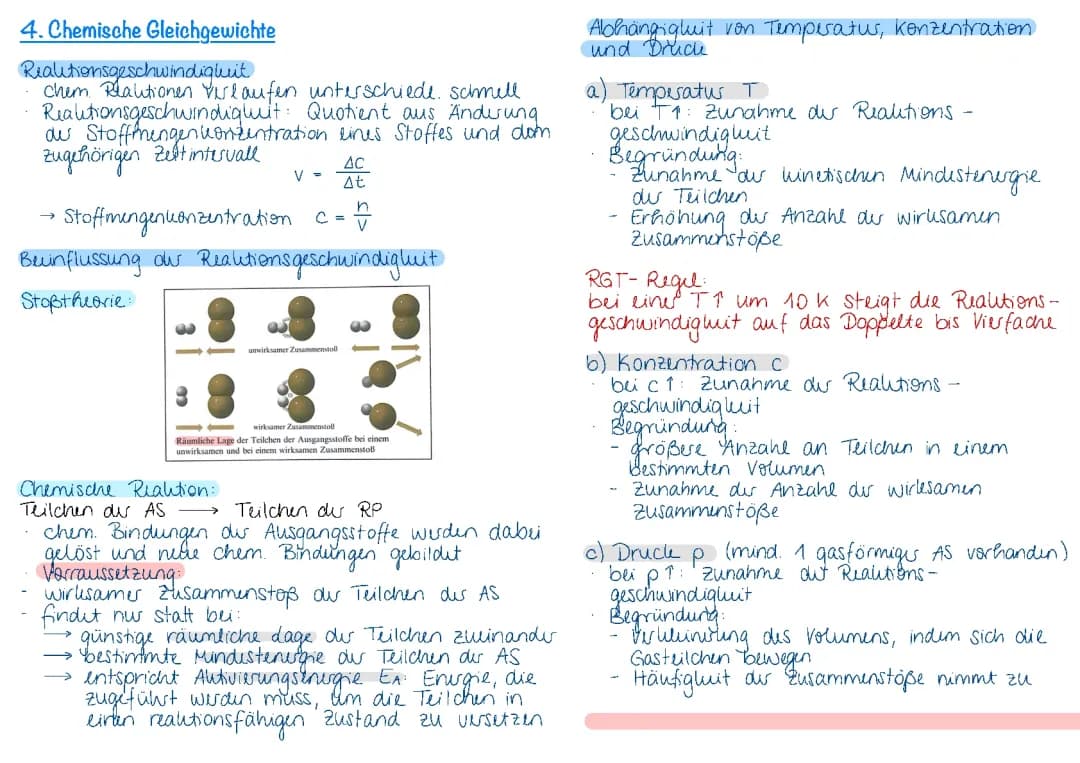 4. Chemische Gleichgewichte
Reaktionsgeschwindigkeit
· chem. Reaktionen verlaufen unterschiedl. schnell
· Reaktionsgeschwindigkeit: Quotient aus Änderung
der Stoffmengenkonzentration eines Stoffes und dem
zugehörigen Zeitintervall
v = ΔC / Δt
→ Stoffmengenkonzentration c = n / V
Beeinflussung der Reaktionsgeschwindigkeit
Stoßtheorie:
unwirksamer Zusammenstoß
wirksamer Zusammenstoß
Räumliche Lage der Teilchen der Ausgangsstoffe bei einem
unwirksamen und bei einem wirksamen Zusammenstoß
Chemische Reaktion:
Teilchen der AS → Teilchen der RP
· chem. Bindungen der Ausgangsstoffe werden dabei
gelöst und neue chem. Bindungen gebildet
· Vorraussetzung:
- wirksamer Zusammenstoß der Teilchen der AS
- findet nur statt bei:
→ günstige räumliche Lage der Teilchen zueinander
→ bestimmte Mindestenergie der Teilchen der AS
→ entspricht Aktivierungsenergie EA: Energie, die
zugeführt werden muss, um die Teilchen in
einen reaktionsfähigen Zustand zu versetzen
Abhängigkeit von Temperatur, Konzentration
und Druck
a) Temperatur T
· bei T↑: Zunahme der Reaktions-
geschwindigkeit
· Begründung:
- Zunahme der kinetischen Mindestenergie
der Teilchen
- Erhöhung der Anzahl der wirksamen
Zusammenstöße
RGT-Regel:
bei einer T↑ um 10 K steigt die Reaktions-
geschwindigkeit auf das Doppelte bis Vierfache
b) Konzentration c
· bei c↑: Zunahme der Reaktions-
geschwindigkeit
· Begründung:
- größere Anzahl an Teilchen in einem
bestimmten Volumen
- Zunahme der Anzahl der wirksamen
Zusammenstöße
c) Druck p (mind. 1 gasförmiger AS vorhanden)
· bei p↑: Zunahme der Reaktions-
geschwindigkeit
· Begründung:
- Verkleinerung des Volumens, indem sich die
Gasteilchen bewegen
- Häufigkeit der Zusammenstöße nimmt zu